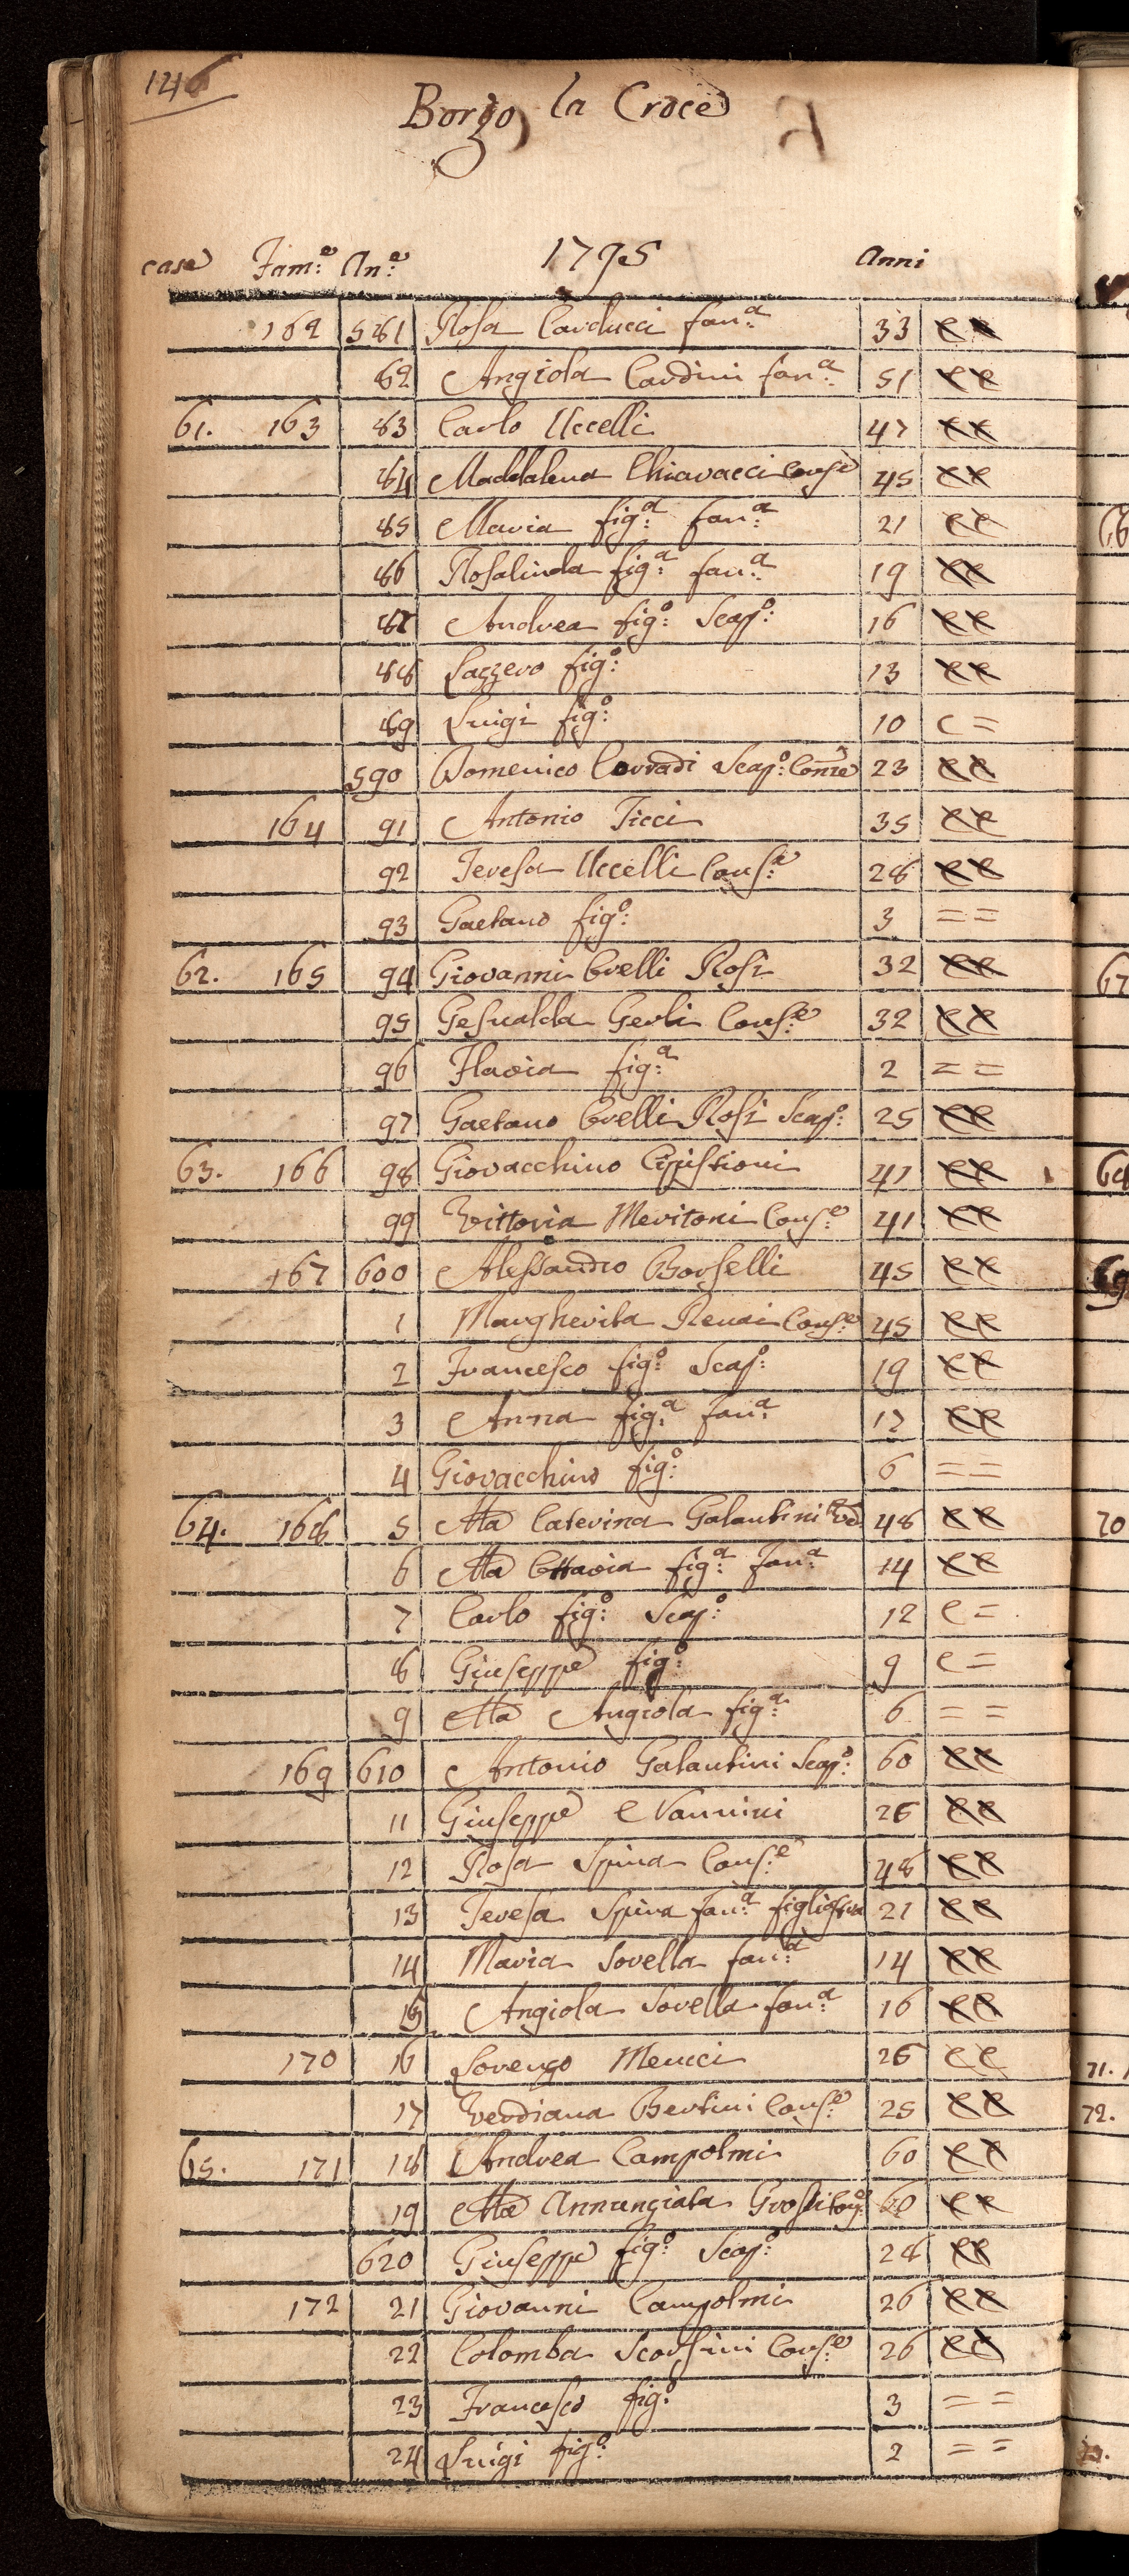 146
Borgo la Croce
case Fam:e An:e 1795 Anni
162 581 Rosa Carducci fan:a 33 cc
82 Angiola Cardini fan:a 51 cc
61. 163 83 Carlo Uccelli 47 cc
84 Maddalena Chiavacci Conse 45 cc
85 Maria fig:a fan:a 21 cc
86 Rosalinda fig:a fan:a 19 cc
87 Andrea fig:o Scap:o 16 cc
88 Lazzero fig:o 13 cc
89 Luigi fig:o 10 c =
590 Domenico Corradi Scap:o 23 cc
164 91 Antonio Ticci 35 cc
92 Teresa Uccelli Cons:e 28 cc
93 Gaetano fig:o 3 = =
62. 165 94 Giovanni Orelli Rosi 32 cc
95 Gesualda Gerli Cons:e 32 cc
96 Flavia fig:a 2 = =
97 Gaetano Orelli Rosi Scap: 25 cc
63. 166 98 Giovacchino Cipistioni 41 cc
99 Vittoria Meritoni Cons:e 41 cc
167 600 Alessandro Borselli 45 cc
1 Margherita Renai Cons:e 45 cc
2 Francesco fig:o Scap:o 19 cc
3 Anna fig:a fan:a 17 cc
4 Giovacchino fig:o 6 = =
64. 168 5 Ma Caterina Galantini Ved 48 cc
6 Ma Ottavia fig:a fan:a 14 cc
7 Carlo fig:o Scap:o 12 c =
8 Giuseppe fig:o 9 c =
9 Ma Angiola fig:a 6 = =
169 610 Antonio Galantini Scap:o 60 cc
11 Giuseppe Nannini 26 cc
12 Rosa Spina Cons:e 48 cc
13 Teresa Spina fan:a figliastra 21 cc
14 Maria Sorella fan:a 14 cc
15 Angiola Sorella fan:a 16 cc
170 16 Lorenzo Menici 26 cc
17 Verdiana Bertini Cons:e 25 cc
65. 171 18 Andrea Campolmi 60 cc
19 Ma Annunziata Grossi Cons:e 60 cc
620 Giuseppe fig:o Scap:o 28 cc
172 21 Giovanni Campolmi 26 cc
22 Colomba Scorsini Cons:e 26 cc
23 Francesco fig:o 3 = =
24 Luigi fig:o 2 = =